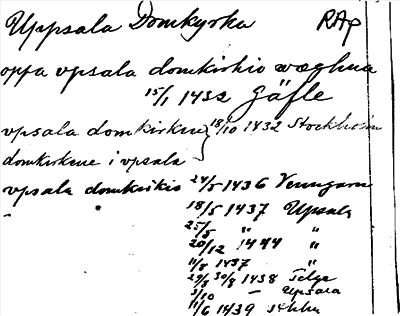 Uppsala Domkyrka RAp
oppa vpsala domkirkio wæghna
15/1 1432 Gäfle
vpsala domkirkene } 18/10 1432 Stockholm
domkirkene i vpsala
vpsala domkirkio 24/5 1436 Venngarn
18/5 1437 Upsala
25/5 " "
20/12 1444 "
11/8 1437 "
29/8 30/8 1438 Telge
3/10 — Upsala
11/6 1439